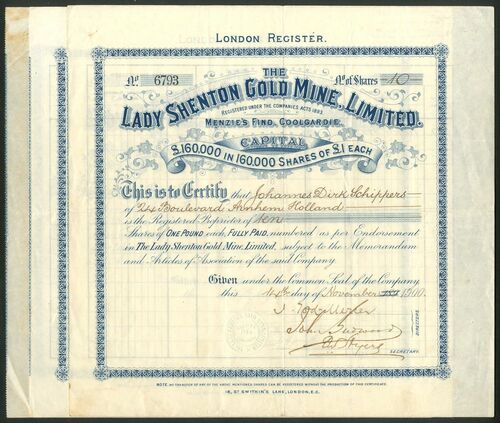 LONDON REGISTER.
No. 6793
No. of Shares 10
THE
LADY SHENTON GOLD MINE, LIMITED.
REGISTERED UNDER THE COMPANIES ACTS 1893
MENZIE'S FIND, COOLGARDIE.
CAPITAL
£160,000 IN 160,000 SHARES OF £1 EACH
This is to Certify that Johannes Dirk Schippers
of 24 Boulevard Arnhem Holland
is the Registered Proprietor of ten
Shares of ONE POUND each, FULLY PAID, numbered as per Endorsement
in The Lady Shenton Gold Mine, Limited, subject to the Memorandum
and Articles of Association of the said Company.
Given under the Common Seal of the Company,
this day of November 1900.
DIRECTORS.
SECRETARY.
NOTE. NO TRANSFER OF ANY OF THE ABOVE MENTIONED SHARES CAN BE REGISTERED WITHOUT THE PRODUCTION OF THIS CERTIFICATE.
18, ST SWITHIN'S LANE, LONDON, E.C.